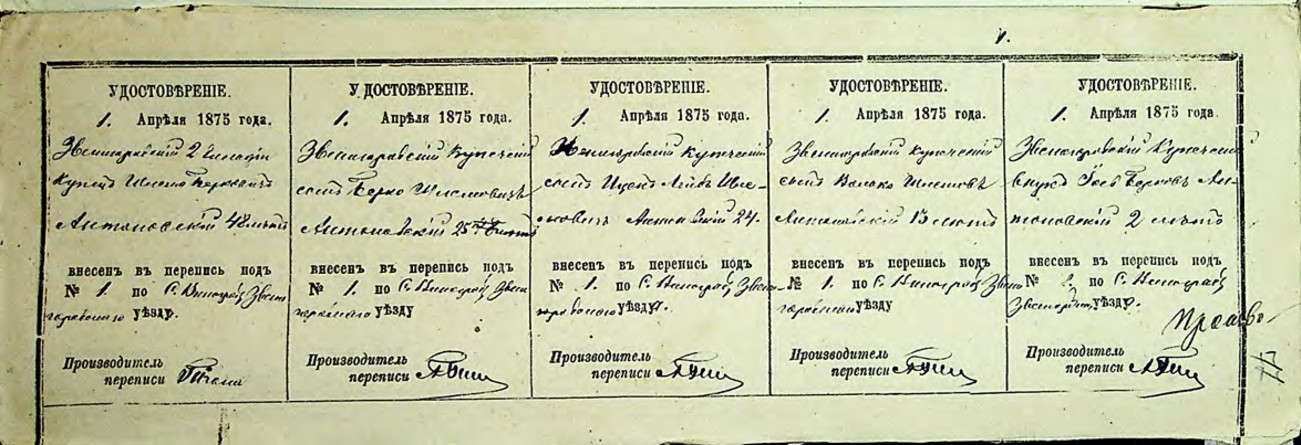 УДОСТОВѢРЕНІЕ.
1. Апрѣля 1875 года.
Звенигородскій 2 гильдіи
купецъ Шлемо Берковичъ
Антоновскій 48 лѣтъ
внесенъ въ перепись подъ
№ 1. по С. Виноградъ Звени-
городскаго уѣзду.
Производитель
переписи
УДОСТОВѢРЕНІЕ.
1. Апрѣля 1875 года.
Звенигородскій купеческій
сынъ Берко Шлемовичъ
Антоновскій 25 лѣтъ
внесенъ въ перепись подъ
№ 1. по С. Виноградъ Звени
городскаго уѣзду
Производитель
переписи
УДОСТОВѢРЕНІЕ.
1. Апрѣля 1875 года.
Звенигородскій купеческій
сынъ Ицекъ Лейбъ Шле-
мовичъ Антоновскій 24.
внесенъ въ перепись подъ
№ 1. по С. Виноградъ Звени-
городскаго уѣзду.
Производитель
переписи
УДОСТОВѢРЕНІЕ.
1. Апрѣля 1875 года.
Звенигородскій купеческій
сынъ Волько Шлемовъ
Антоновскій 13 лѣтъ
внесенъ въ перепись подъ
№ 1. по С. Виноградъ Звени
городскаго уѣзду
Производитель
переписи
УДОСТОВѢРЕНІЕ.
1. Апрѣля 1875 года.
Звенигородскій купеческій
внукъ Іосъ Берковъ Ан-
тоновскій 2 лѣтъ
внесенъ въ перепись подъ
№ по С. Виноградъ
Звенигород. уѣзду.
Производитель
переписи